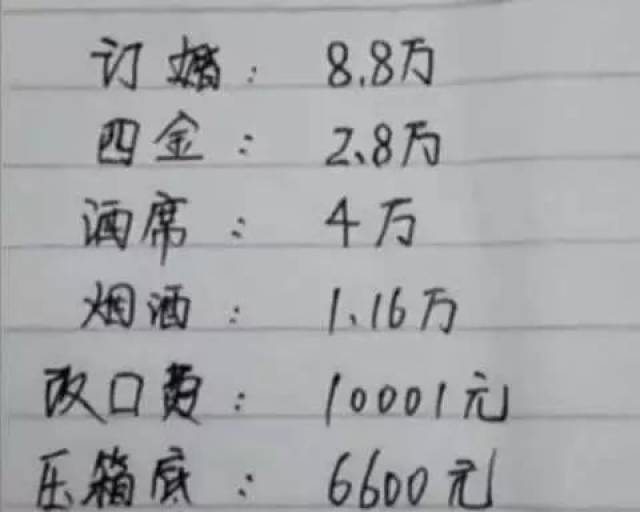 订婚：8.8万
四金：2.8万
酒席：4万
烟酒：1.16万
改口费：10001元
压箱底：6600元